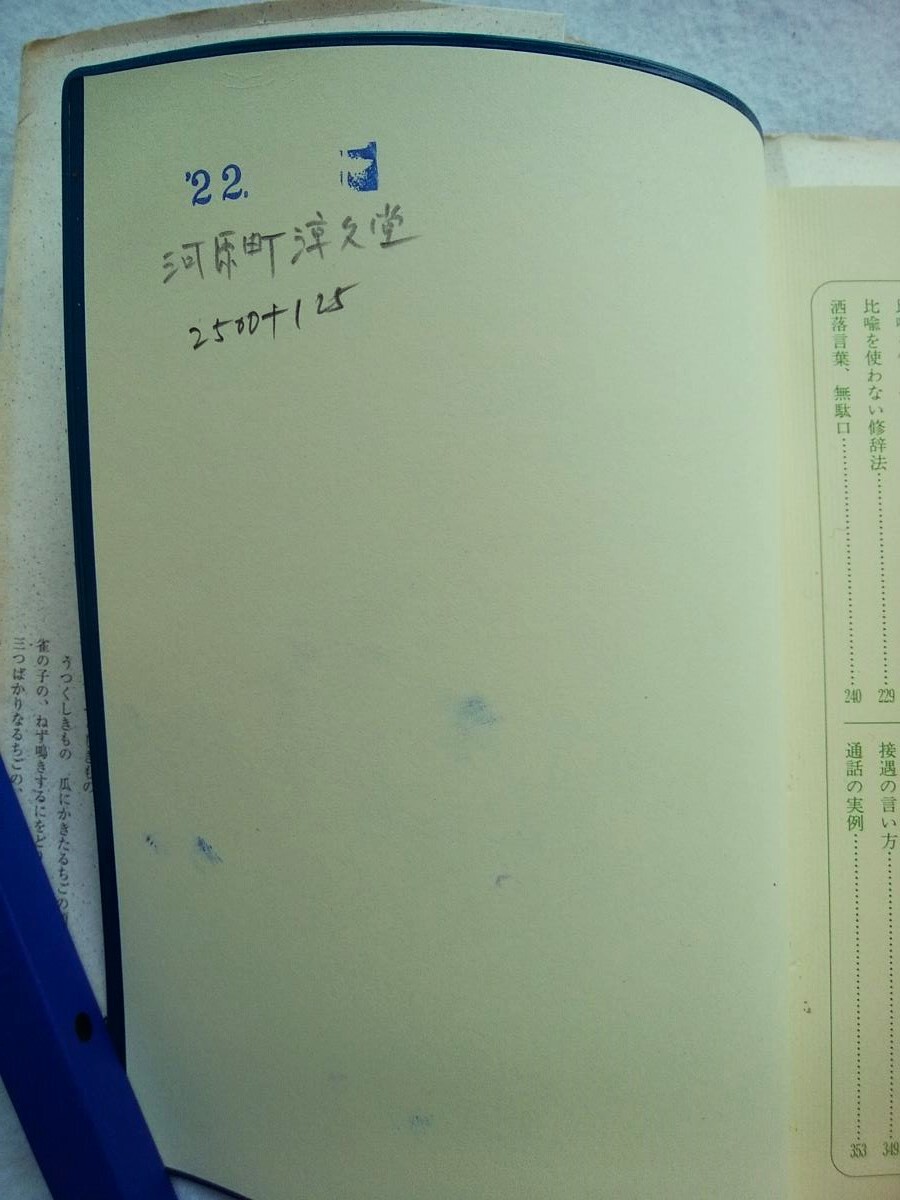 '22.
河原町淳久堂
2500+125
比喩を使わない修辞法
229
洒落言葉、無駄口
240
接遇の言い方
349
通話の実例
353
うつくしきもの 瓜にかきたるちごの
雀の子の、ねず鳴きするにをど
三つばかりなるちごの、